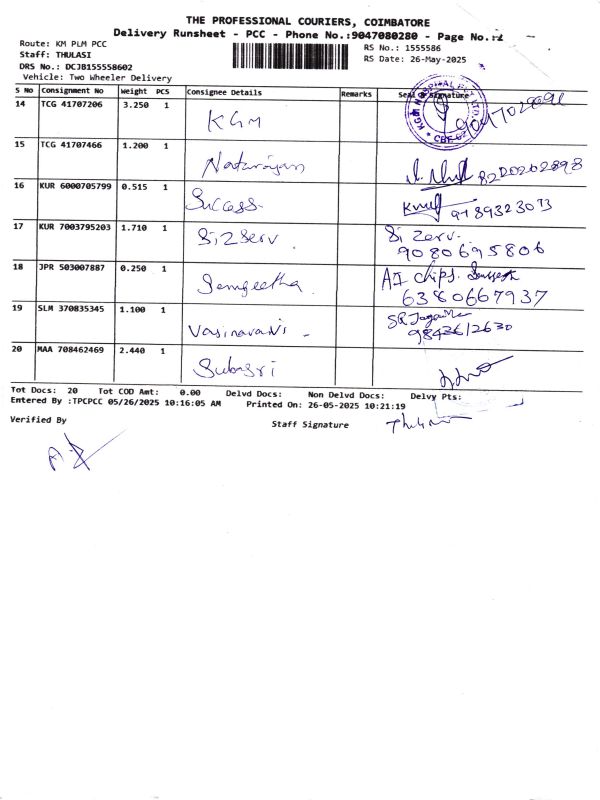 THE PROFESSIONAL COURIERS, COIMBATORE
Delivery Runsheet - PCC - Phone No.:9047080280 - Page No.:2
Route: KM PLM PCC
Staff: THULASI
DRS No.: DCJB155558602
Vehicle: Two Wheeler Delivery
RS No.: 1555586
RS Date: 26-May-2025
S No Consignment No Weight PCS Consignee Details Remarks Seal & Signature
14 TCG 41707206 3.250 1 KGM
15 TCG 41707466 1.200 1 Natarajan 8220202898
16 KUR 6000705799 0.515 1 Success. 9789323073
17 KUR 7003795203 1.710 1 Si2Serv. Si Zerv.
9080695806
18 JPR 503007887 0.250 1 Sangeetha. AI chips.
6380667937
19 SLM 370835345 1.100 1 9843612630
20 MAA 708462469 2.440 1 Subasri
Tot Docs: 20 Tot COD Amt: 0.00 Delvd Docs: Non Delvd Docs: Delvy Pts:
Entered By :TPCPCC 05/26/2025 10:16:05 AM Printed On: 26-05-2025 10:21:19
Verified By
Staff Signature